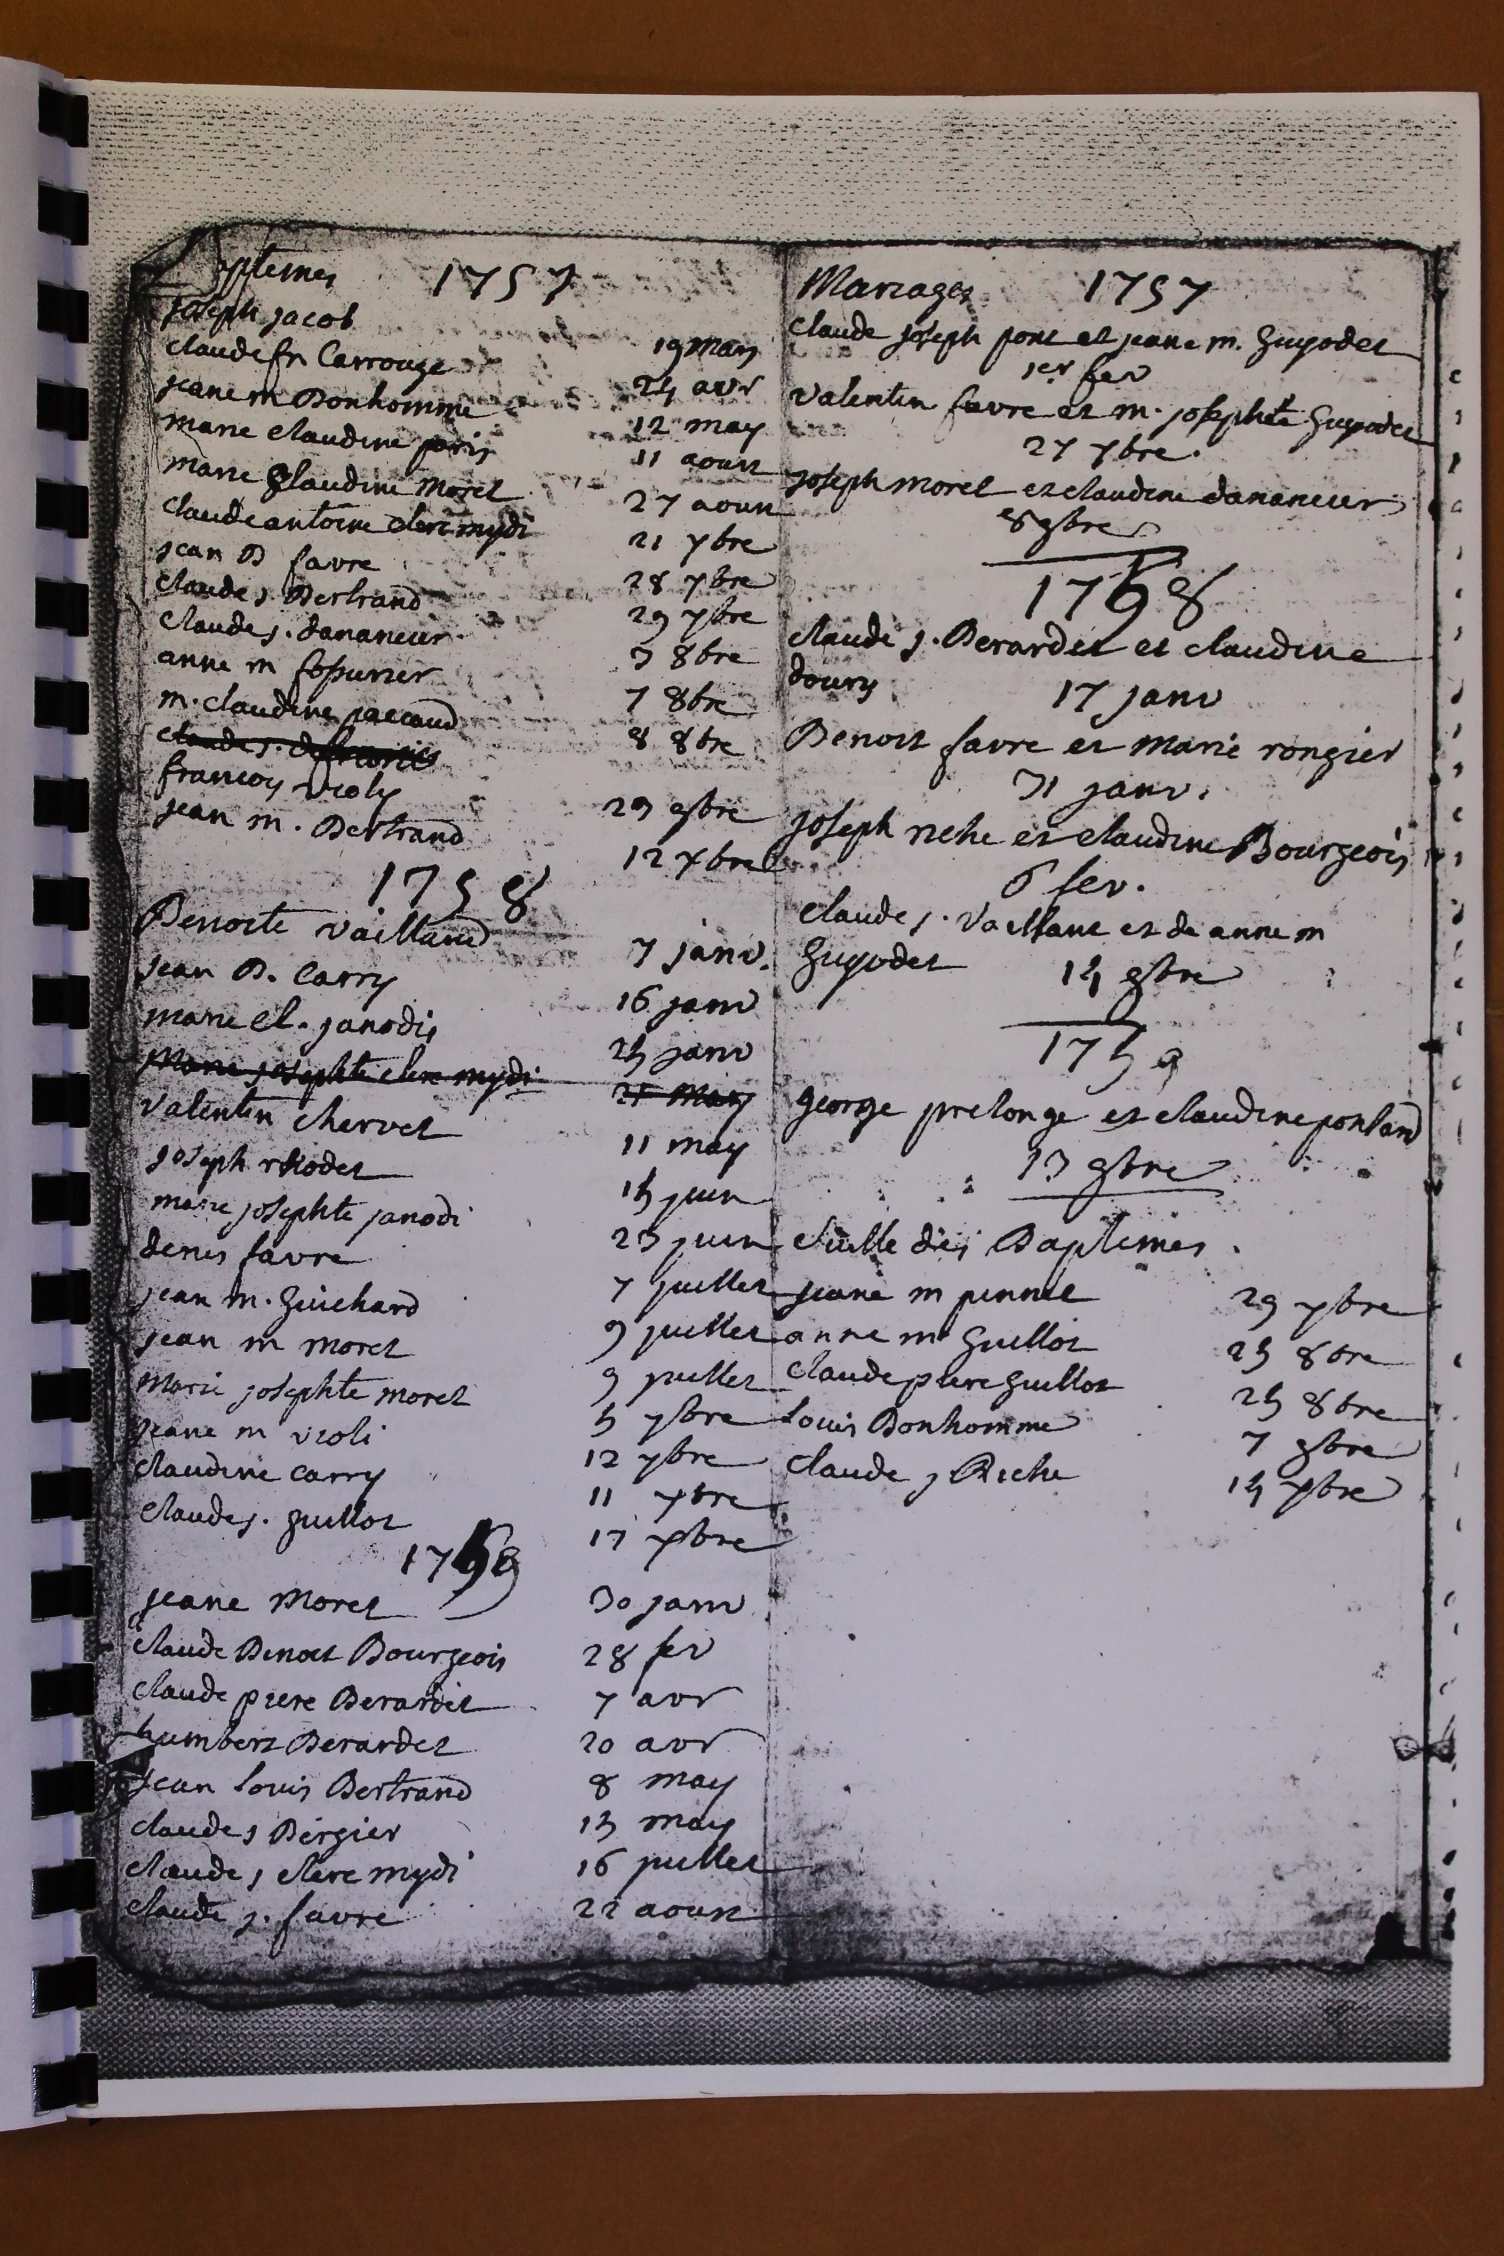 ptemes 1757
joseph jacob 19 mars
claude fr Carrouge 25 avr
jeane m Bonhomme 12 may
marie claudine paris 11 aoust
marie Claudine Moret 27 aoust
claude antoine clere mydi 21 7bre
jean B favre 28 7bre
claude j Bertrand 29 7bre
claude j. dananeur 3 8bre
anne m 7 8bre
m. claudine jaccaud 8 8bre
claude j.
francois violy 23 9bre
jean m. Bertrand 12 xbre
1758
Benoite vailland 7 janv.
jean B. Carry 16 janv
marie cl. janodis 25 janv
Marie josephte clere mydi 21 may
valentin Chervet 11 may
joseph rhodet 15 juin
marie josephte janodi 23 juin
denis favre 7 juillet
jean m. guichard 9 juillet
jean m moret 9 juillet
Marie josephte moret 5 7bre
jeane m violi 12 7bre
Claudine Carry 11 xbre
Claude j. guillot 17 xbre
1759
jeane Moret 30 janv
Claude Benoit Bourgeois 28 fev
Claude piere Berardet 7 avr
humbert Berardet 20 avr
jean louis Bertrand 8 may
claude j Bergier 15 may
Claude j clere mydi 16 juillet
Claude j. favre 22 aoust
Mariages 1757
Claude joseph pont et jeane m. guyodet
1er fev
valentin favre et m. josephte guyodet
27 7bre.
joseph moret et claudine dananeur
8 9bre
1758
claude j. Berardet et claudine
doury 17 janv
Benoit favre et marie rongier
31 janv.
joseph riche et claudine Bourgeois
6 fev.
Claude j. vaillant et de anne m
guyodet 14 9bre
1759
george prelonge et claudine
13 9bre
Suitte des Baptemes.
jeane m pinnet 29 7bre
anne m guillot 25 8bre
Claude piere guillot 25 8bre
louis Bonhomme 7 9bre
Claude j Riche 14 xbre